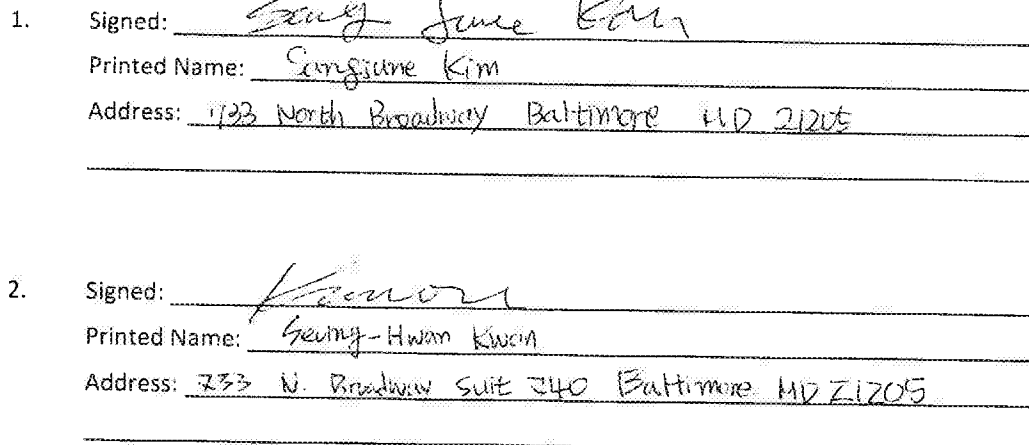 1. Signed: Sang June Kim
Printed Name: Sangjune Kim
Address: 733 North Broadway Baltimore MD 21205
2. Signed: Kwon
Printed Name: Seung-Hwan Kwon
Address: 733 N. Broadway Suit 740 Baltimore MD 21205